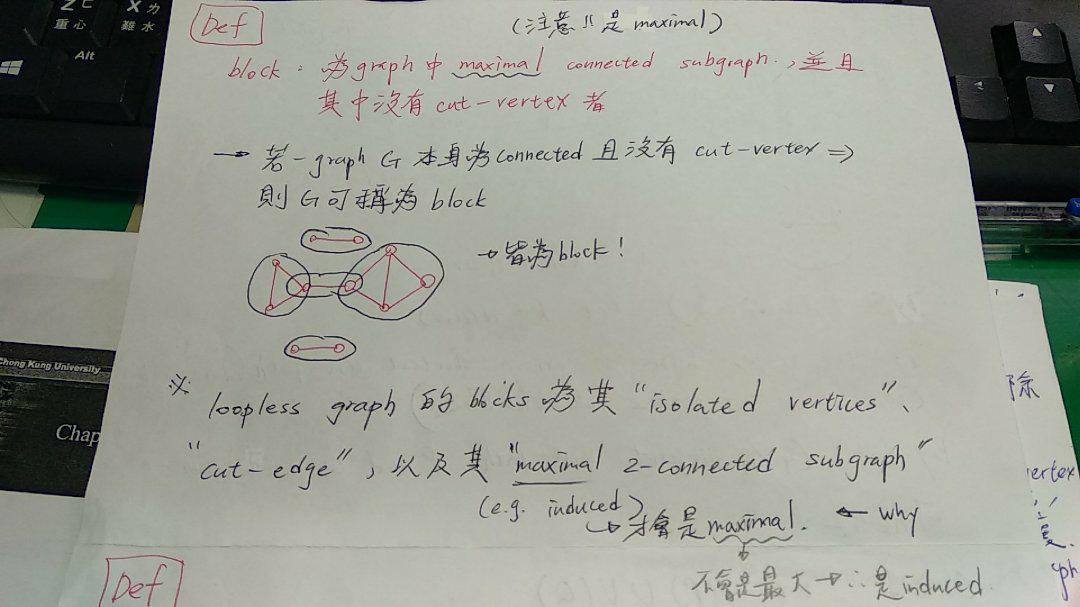 Def
(注意!!是 maximal)
block: 為 graph 中 maximal connected subgraph., 並且
其中沒有 cut-vertex 者
→ 若一 graph G 本身為 connected 且沒有 cut-vertex ⇒
則 G 可稱為 block
→ 皆為 block!
※ loopless graph 的 blocks 為其 "isolated vertices"、
"cut-edge", 以及其 "maximal 2-connected subgraph"
(e.g. induced)
↳ 才會是 maximal. ← why
不會是最大 → ∴是 induced
Def
重心
難 水
Alt
Cheng Kung University
Chap
除
ertex